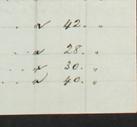 " 42. "
" 28. "
" 30. "
" 40. "